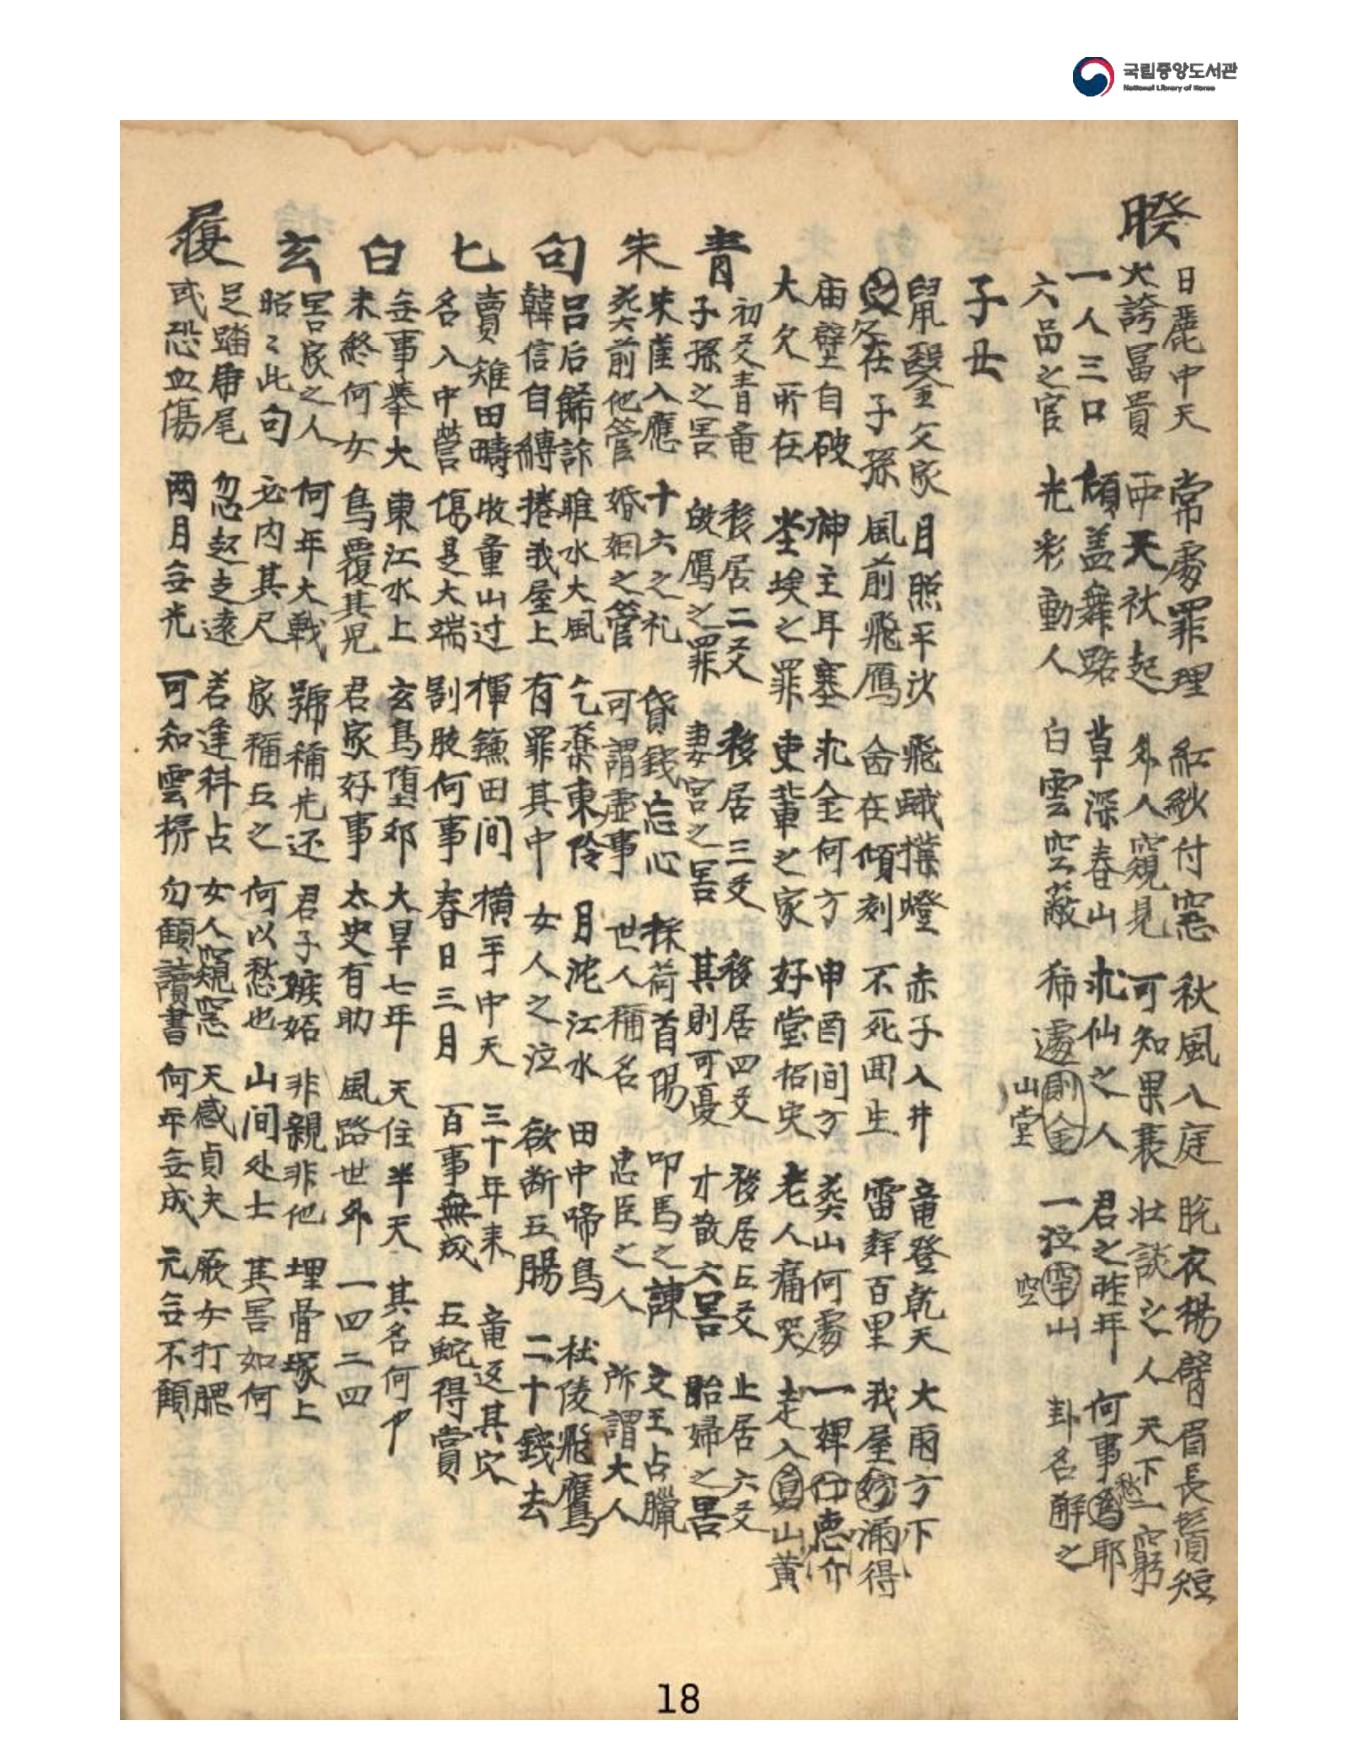 국립중앙도서관
National Library of Korea
睽
日麗中天 常處罪理 紅紗付窓 秋風入庭 脱衣揚臂 眉長鬚短
大誇冨貴 雨天秋起 外人窺見 可知果衰 壮談之人 天下一窮
一人三口 傾盖舞路 草深春山 北仙之人 君之昨年 何事為耶
愁
六品之官 光彩動人 白雲空蔽 稀處則金 一泣 山 卦名解之
山堂 空
子丑
鼠 金父家 月照平沙 飛蛾撲燈 赤子入井 竜登乾天 大雨方下
欠在子孫 風前飛鴈 命在傾刻 不死囬生 雷 百里 我屋 漏得
庙壁自破 神主耳塞 北金何方 申酉间方 葬山何處 一 忠介
大欠所在 坐埃之罪 吏輩之家 好堂招灾 老人痛哭 走入 山黄
青
初爻青竜 移居二爻 移居三爻 移居四爻 移居五爻 上居六爻
子孫之害 放鴈之罪 妻宮之害 其則可憂 才散六害 胎婦之害
朱
朱崖入應 十六之礼 貸錢忘心 採荷首陽 叩馬之諫 文王占臘
葬前他管 婚姻之管 可謂虚事 世人稱名 忠臣之人 所謂大人
句
吕后歸訴 睢水大風 乞藥東伶 月沈江水 田中啼鳥 杜陵飛鷹
韓信自縛 捲我屋上 有罪其中 女人之泣 欲断五腸 二十錢去
七
賣雉田疇 收童山过 揮鎌田间 横手中天 三十年来 竜返其穴
名入中營 傷是大端 割股何事 春日三月 百事無成 五蛇得賞
白
每事擧大 東江水上 玄鳥堕卵 大旱七年 天住半天 其名何尹
未終何女 鳥覆其児 君家好事 太史有助 風路世外 一四二四
玄
害家之人 何年大戰 號稱先还 君子嫉妬 非親非他 埋骨塚上
昭〻此句 必内其尺 家稱五之 何以愁也 山间处士 其害如何
履
足踏席尾 忽起走遠 若逢科占 女人窺窓 天感貞夫 厥女打肥
或恐血傷 两月每光 可知雲榜 勿顧讀書 何年每成 元每不顧
18